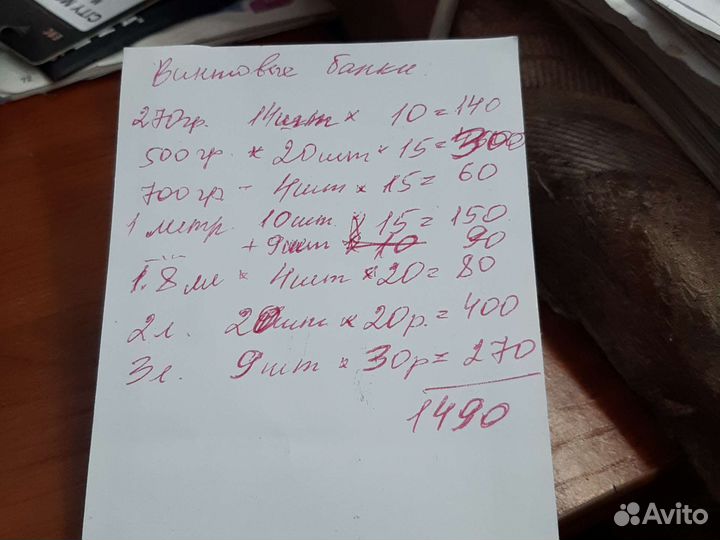 CITY
Винтовые банки.
270гр. 14шт × 10 = 140
500гр. × 20шт × 15 = 300
700гр - 4шт × 15 = 60
1 литр. 10шт. × 15 = 150.
+ 9шт × 10 90
1.8 ли × 4шт × 20 = 80
2л. 20шт × 20р. = 400
3л. 9шт × 30р = 270
1490
Avito